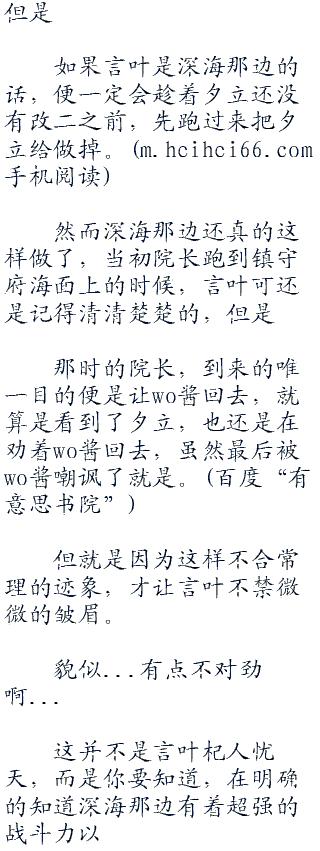 但是
如果言叶是深海那边的
话，便一定会趁着夕立还没
有改二之前，先跑过来把夕
立给做掉。(m.hcihci66.com
手机阅读)
然而深海那边还真的这
样做了，当初院长跑到镇守
府海面上的时候，言叶可还
是记得清清楚楚的，但是
那时的院长，到来的唯
一目的便是让wo酱回去，就
算是看到了夕立，也还是在
劝着wo酱回去，虽然最后被
wo酱嘲讽了就是。(百度“有
意思书院”)
但就是因为这样不合常
理的迹象，才让言叶不禁微
微的皱眉。
貌似...有点不对劲
啊...
这并不是言叶杞人忧
天，而是你要知道，在明确
的知道深海那边有着超强的
战斗力以